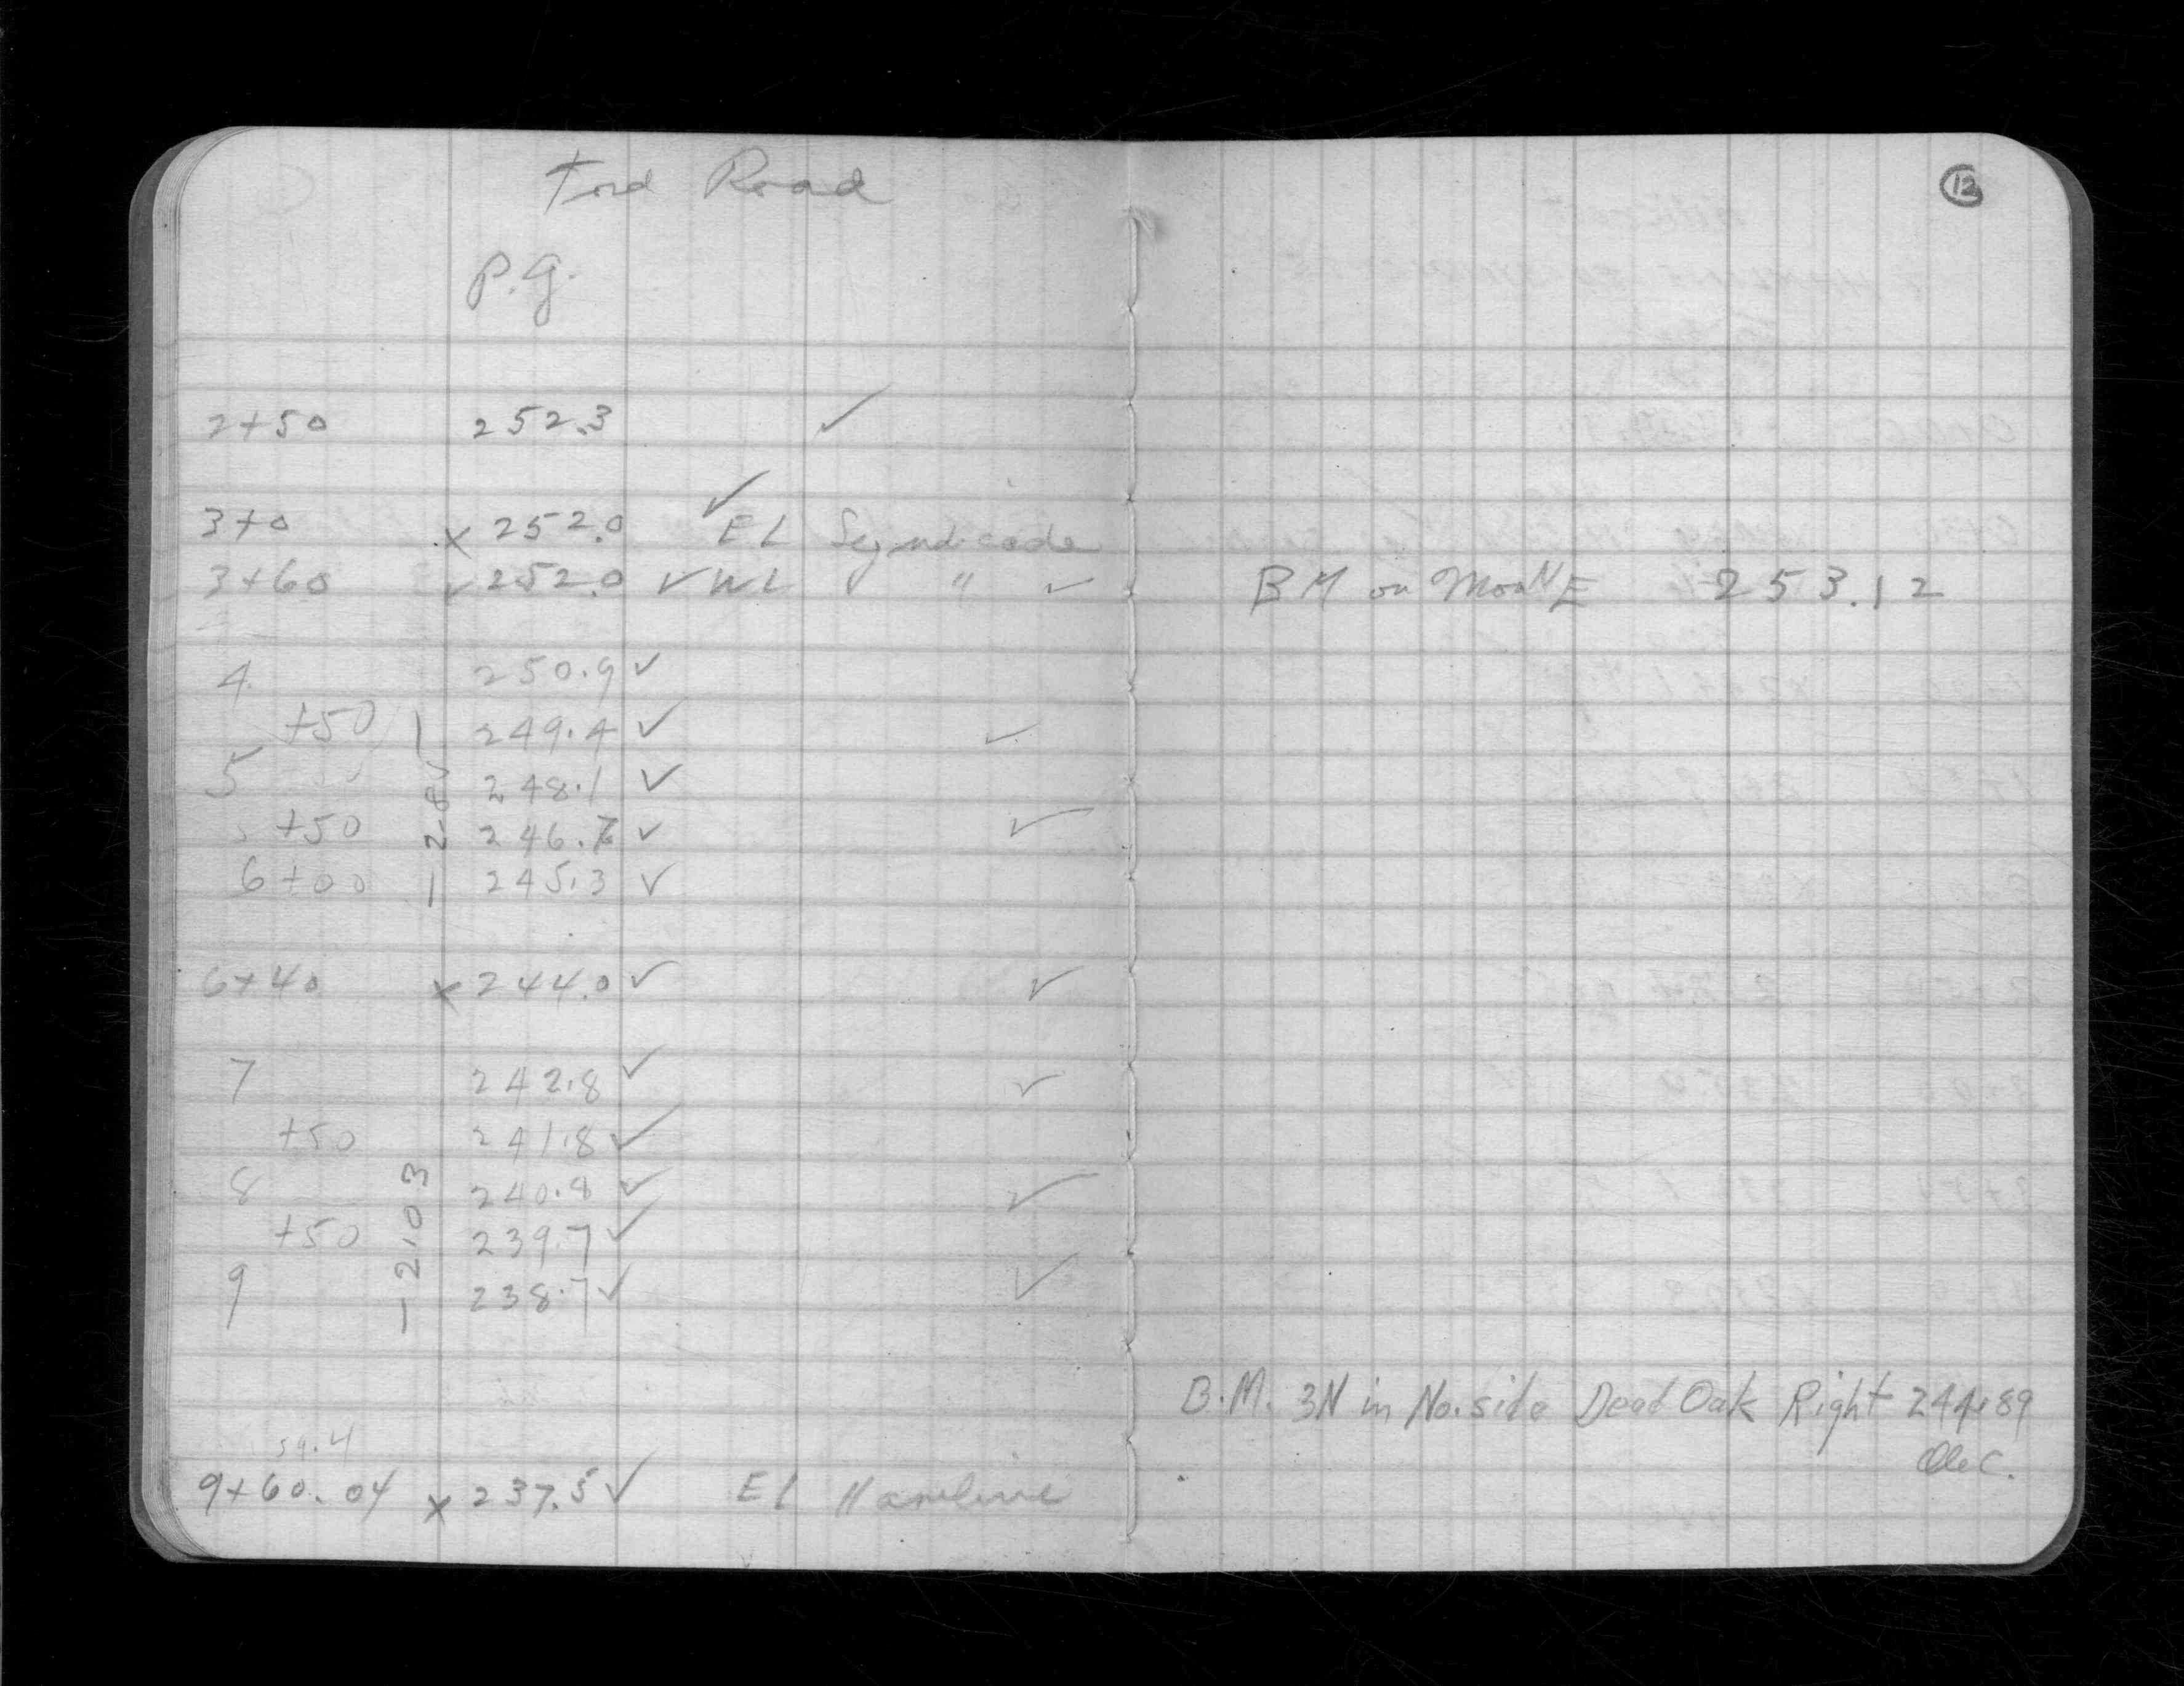 Ford Road
P.G.
2+50 252.3 ✓
3+0 x 252.0 ✓ EL Syndicade
3+60 ✓ 252.0 ✓ WL " ✓
4 250.9 ✓
+50 249.4 ✓ ✓
5 248.1 ✓
+50 246.7 ✓ ✓
6+00 245.3 ✓
— 2.8 —
6+40 x 244.0 ✓ ✓
7 242.8 ✓ ✓
+50 241.8 ✓
8 240.8 ✓ ✓
+50 239.7 ✓
9 238.7 ✓ ✓
— 2.103
59.4
9+60.04 x 237.5 ✓ EL Hamline
12
BM on Mon NE 253.12
B.M. 3N in No. side Dead Oak Right 244.89